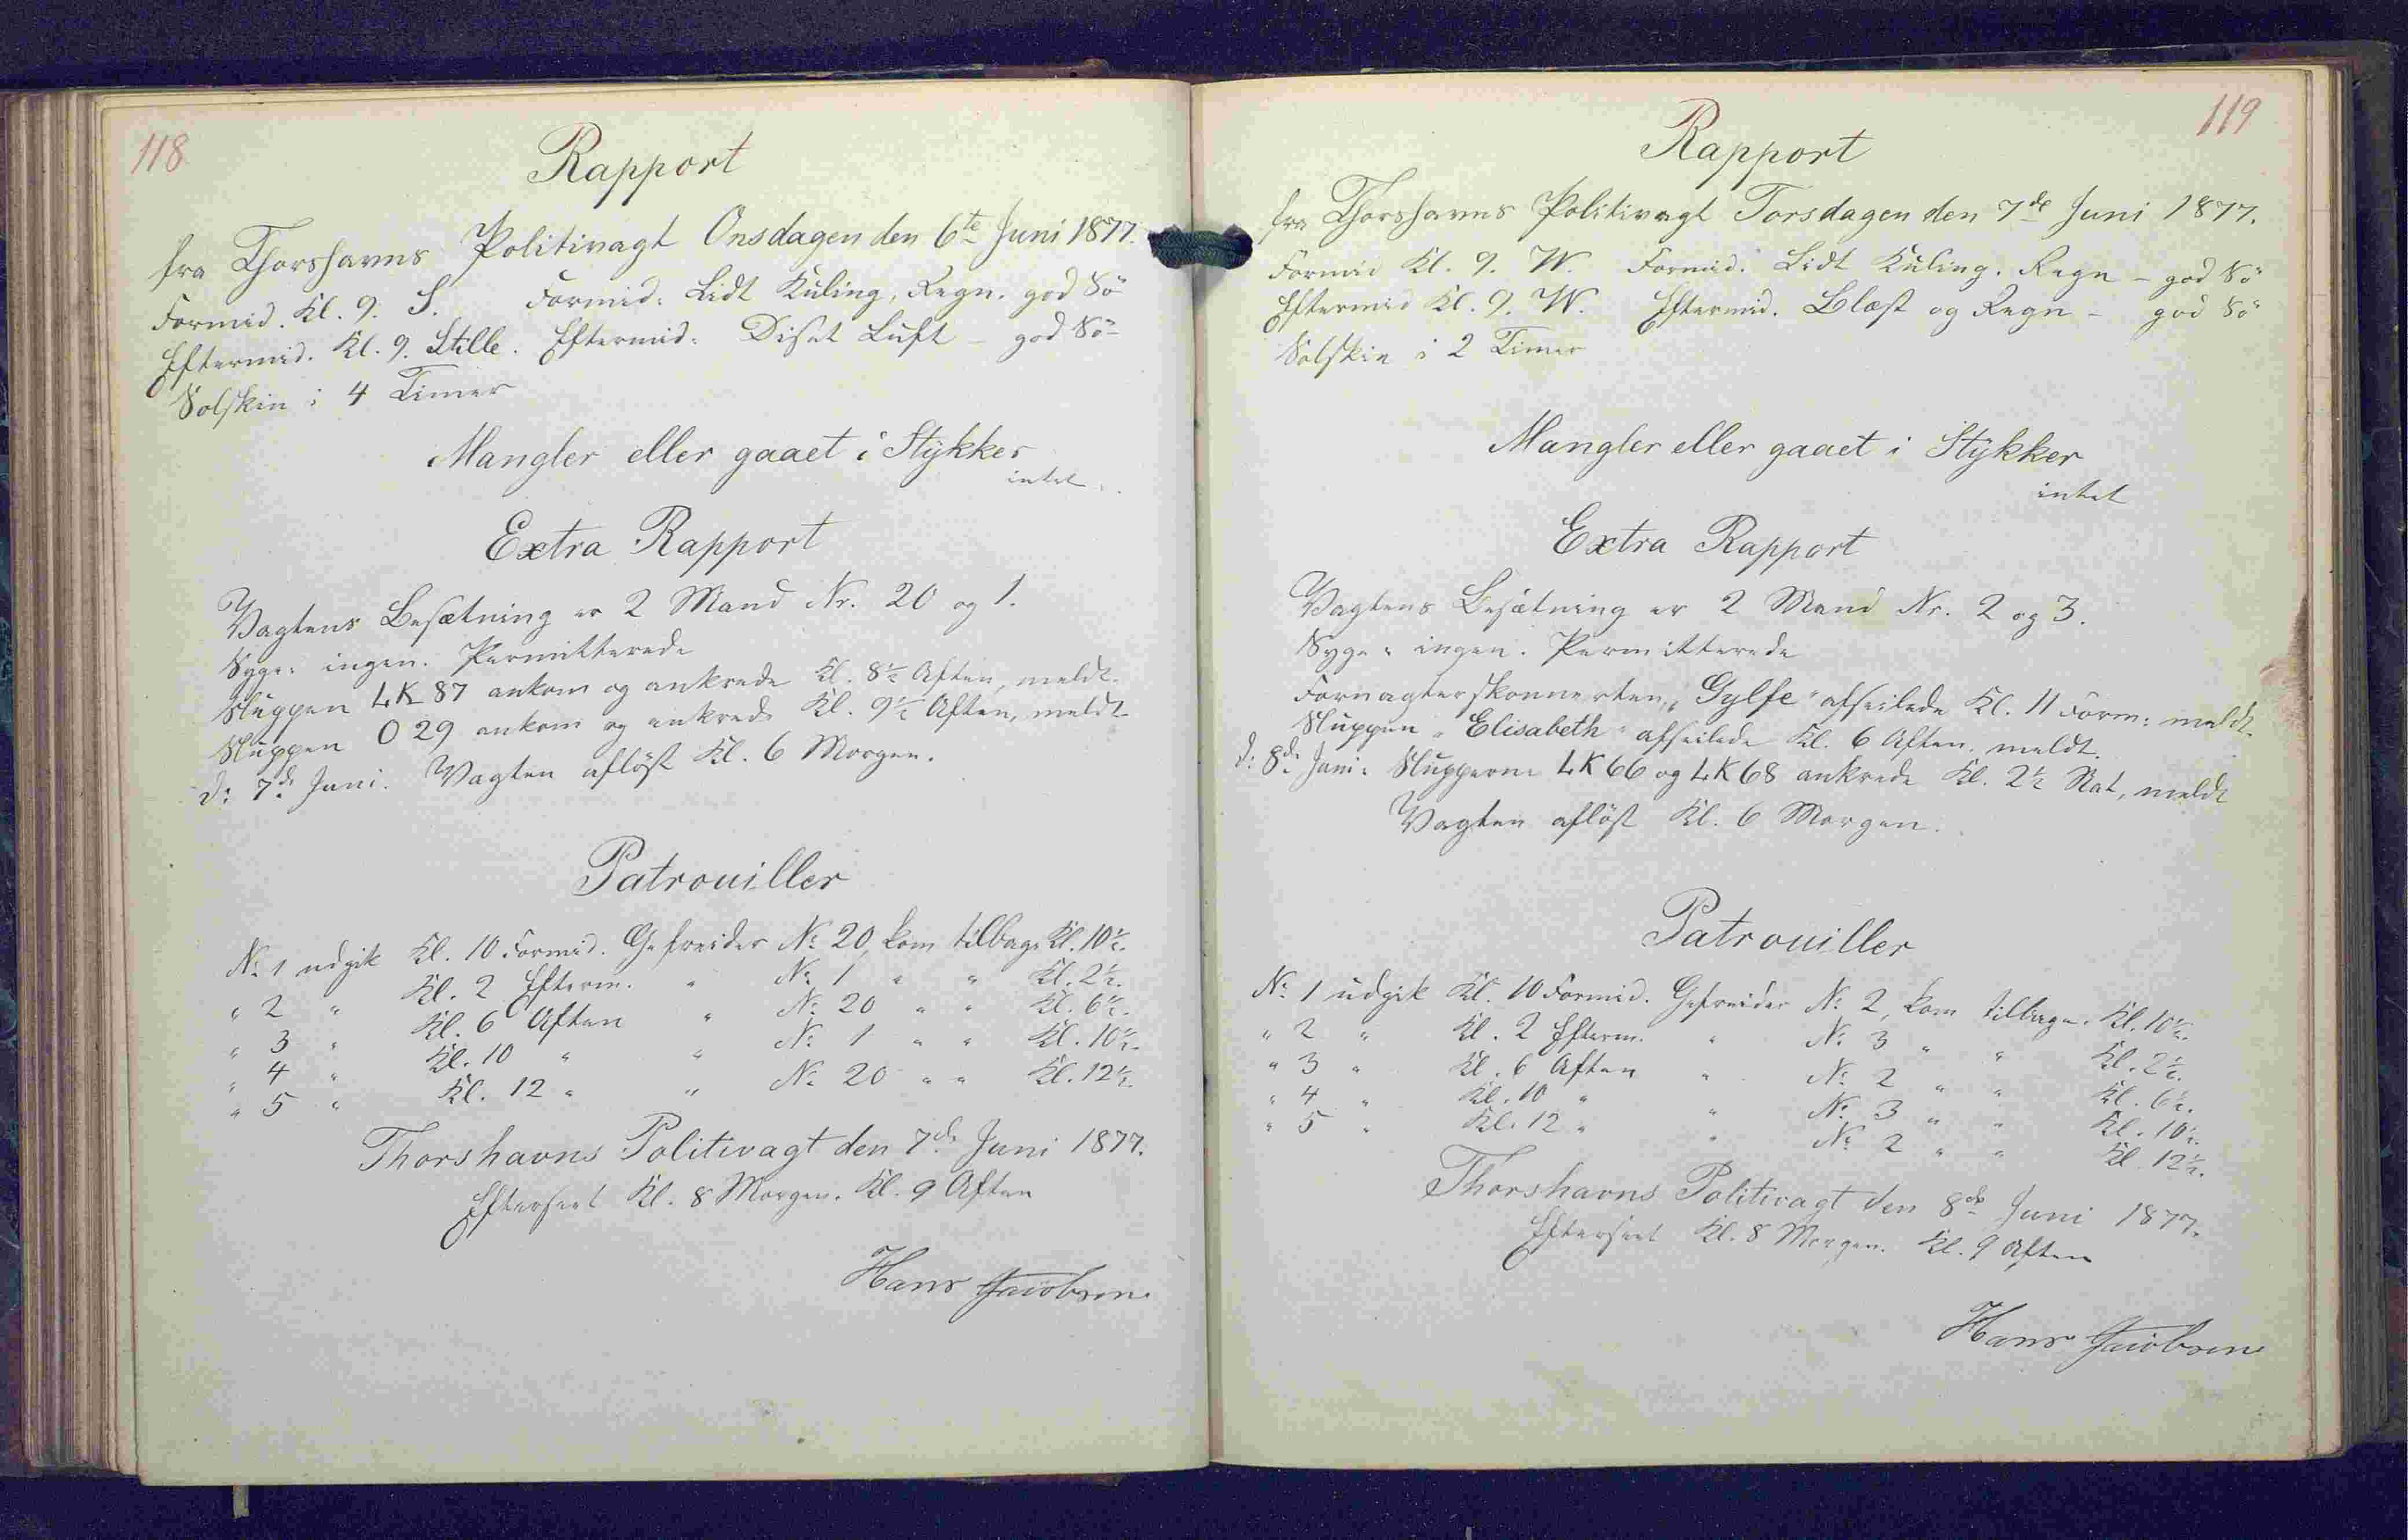 118
Rapport
fra Thorshavns Politivagt Onsdagen den 6te Juni 1877.
Formid. Kl. 9. S. Formid: Lidt Kuling, Regn. god Sö
Eftermid. Kl. 9. Stille. Eftermid: Diset Luft – god Sö
Solskin i 4 Timer
Mangler eller gaaet i Stykker
intet.
Extra Rapport
Vagtens Besætning er 2 Mand Nr. 20 og 1.
Syge: ingen. Permitterede
Sluppen LK 87 ankom og ankrede Kl. 8½ Aften, meldt.
Sluppen O 29 ankom og ankrede Kl. 9½ Aften, meldt
d: 7de Juni. Vagten aflöst Kl. 6 Morgen.
Patrouiller
No 1 udgik Kl. 10 Formid. Gefreider No 20, kom tilbage Kl. 10½.
" 2 " Kl. 2 Efterm. " No 1 " " Kl. 2½.
" 3 " Kl. 6 Aften " No 20 " " Kl. 6½.
" 4 " Kl. 10 " " No 1 " " Kl. 10½.
" 5 " Kl. 12 " " No 20 " " Kl. 12½.
Thorshavns Politivagt den 7de Juni 1877.
Efterseet Kl. 8 Morgen. Kl. 9 Aften
Hans Jacobsen
119
Rapport
fra Thorshavns Politivagt Torsdagen den 7de Juni 1877.
Formid Kl. 9. W. Formid. Lidt Kuling. Regn – god Sö
Eftermid Kl. 9. W. Eftermid. Blæst og Regn – god Sö
Solskin i 2 Timer
Mangler eller gaaet i Stykker
intet
Extra Rapport
Vagtens Besætning er 2 Mand Nr. 2 og 3.
Syge: ingen. Permitterede
Forvagterskonnerten "Gylfe" afseilede Kl. 11 Form: meldt.
Sluppen "Elisabeth" afseilede Kl. 6 Aften. meldt.
d: 8de Juni: Slupperne LK 66 og LK 68 ankrede Kl. 2½ Nat, meldt
Vagten aflöst Kl. 6 Morgen.
Patrouiller
No 1 udgik Kl. 10 Formid. Gefreider No 2, kom tilbage. Kl. 10½.
" 2 " Kl. 2 Efterm. " No 3 " " Kl. 2½.
" 3 " Kl. 6 Aften " No 2 " " Kl. 6½.
" 4 " Kl. 10 " " No 3 " " Kl. 10½.
" 5 " Kl. 12 " " No 2 " " Kl. 12½.
Thorshavns Politivagt den 8de Juni 1877.
Efterseet Kl. 8 Morgen. Kl. 9 Aften
Hans Jacobsen